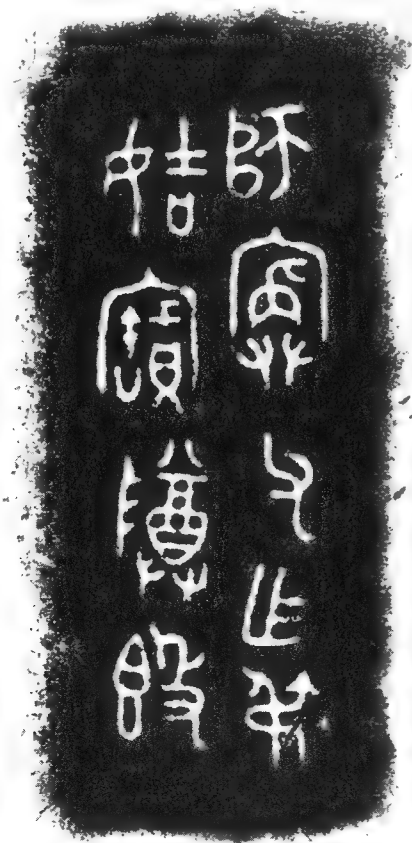 師寏父乍季
姞寶尊𣪘